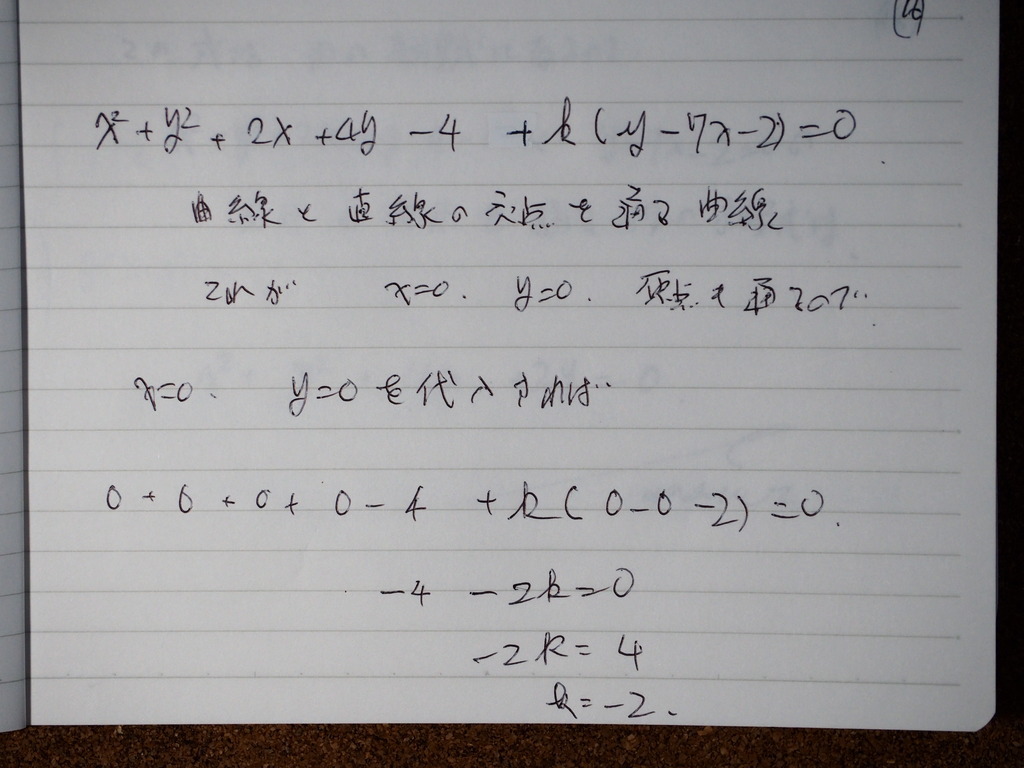 x²+y²+2x+4y-4 +k(y-7x-2)=0
曲線と直線の交点を通る曲線
これが x=0. y=0. 原点を通るので
x=0. y=0を代入すれば
0+0+0+0-4 +k(0-0-2)=0.
-4 -2k=0
-2k=4
k=-2.